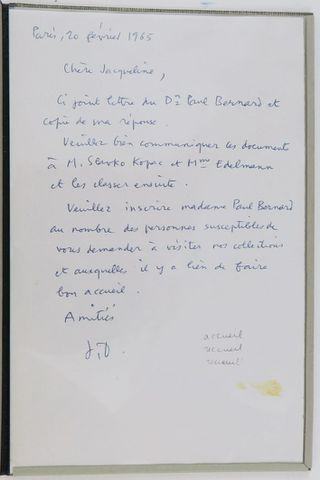 Paris, 20 février 1965
Chère Jacqueline,
Ci joint lettre du Dr Paul Bernard et
copie de ma réponse.
Veuillez bien communiquer les document
à M. Slavko Kopac et Mme Edelmann
et les classer ensuite.
Veuillez inscrire madame Paul Bernard
au nombre des personnes susceptibles de
vous demander à visiter nos collections
et auxquelles il y a lieu de faire
bon accueil.
Amitiés
J.D.
accueil
recueil